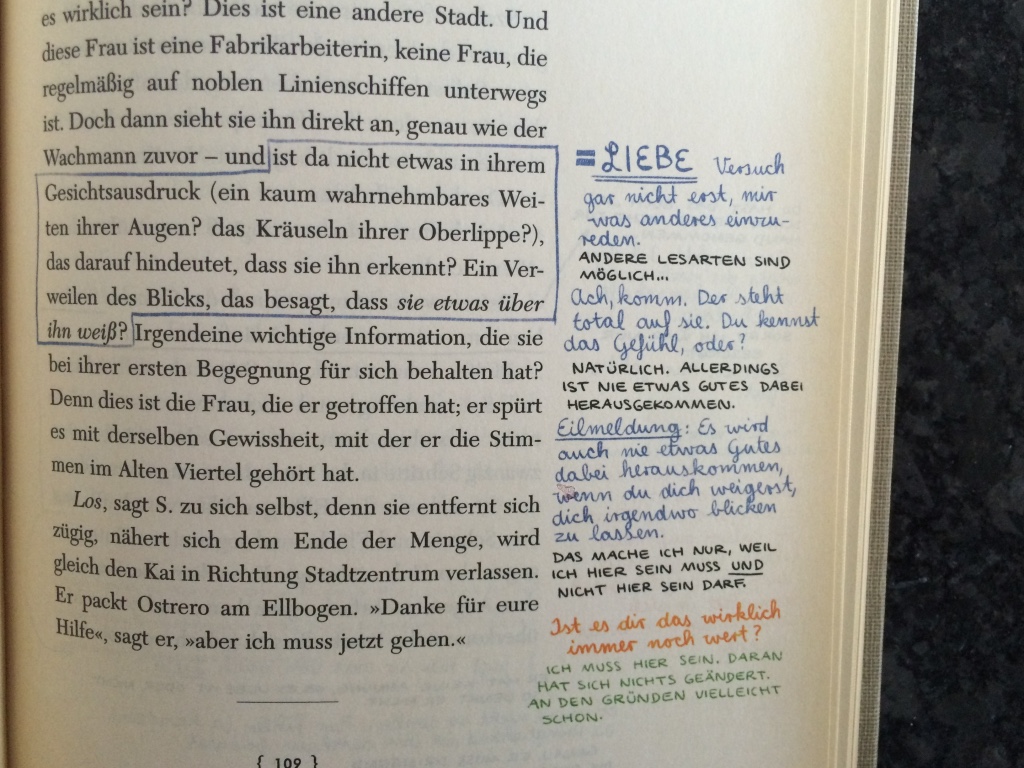 es wirklich sein? Dies ist eine andere Stadt. Und
diese Frau ist eine Fabrikarbeiterin, keine Frau, die
regelmäßig auf noblen Linienschiffen unterwegs
ist. Doch dann sieht sie ihn direkt an, genau wie der
Wachmann zuvor – und ist da nicht etwas in ihrem
Gesichtsausdruck (ein kaum wahrnehmbares Wei-
ten ihrer Augen? das Kräuseln ihrer Oberlippe?),
das darauf hindeutet, dass sie ihn erkennt? Ein Ver-
weilen des Blicks, das besagt, dass sie etwas über
ihn weiß? Irgendeine wichtige Information, die sie
bei ihrer ersten Begegnung für sich behalten hat?
Denn dies ist die Frau, die er getroffen hat; er spürt
es mit derselben Gewissheit, mit der er die Stim-
men im Alten Viertel gehört hat.
Los, sagt S. zu sich selbst, denn sie entfernt sich
zügig, nähert sich dem Ende der Menge, wird
gleich den Kai in Richtung Stadtzentrum verlassen.
Er packt Ostrero am Ellbogen. »Danke für eure
Hilfe«, sagt er, »aber ich muss jetzt gehen.«
{ 109 }
=LIEBE Versuch
gar nicht erst, mir
was anderes einzu-
reden.
ANDERE LESARTEN SIND
MÖGLICH...
Ach, komm. Der steht
total auf sie. Du kennst
das Gefühl, oder?
NATÜRLICH. ALLERDINGS
IST NIE ETWAS GUTES DABEI
HERAUSGEKOMMEN.
Eilmeldung: Es wird
auch nie etwas Gutes
dabei herauskommen,
wenn du dich weigerst,
dich irgendwo blicken
zu lassen.
DAS MACHE ICH NUR, WEIL
ICH HIER SEIN MUSS UND
NICHT HIER SEIN DARF.
Ist es dir das wirklich
immer noch wert?
ICH MUSS HIER SEIN. DARAN
HAT SICH NICHTS GEÄNDERT.
AN DEN GRÜNDEN VIELLEICHT
SCHON.